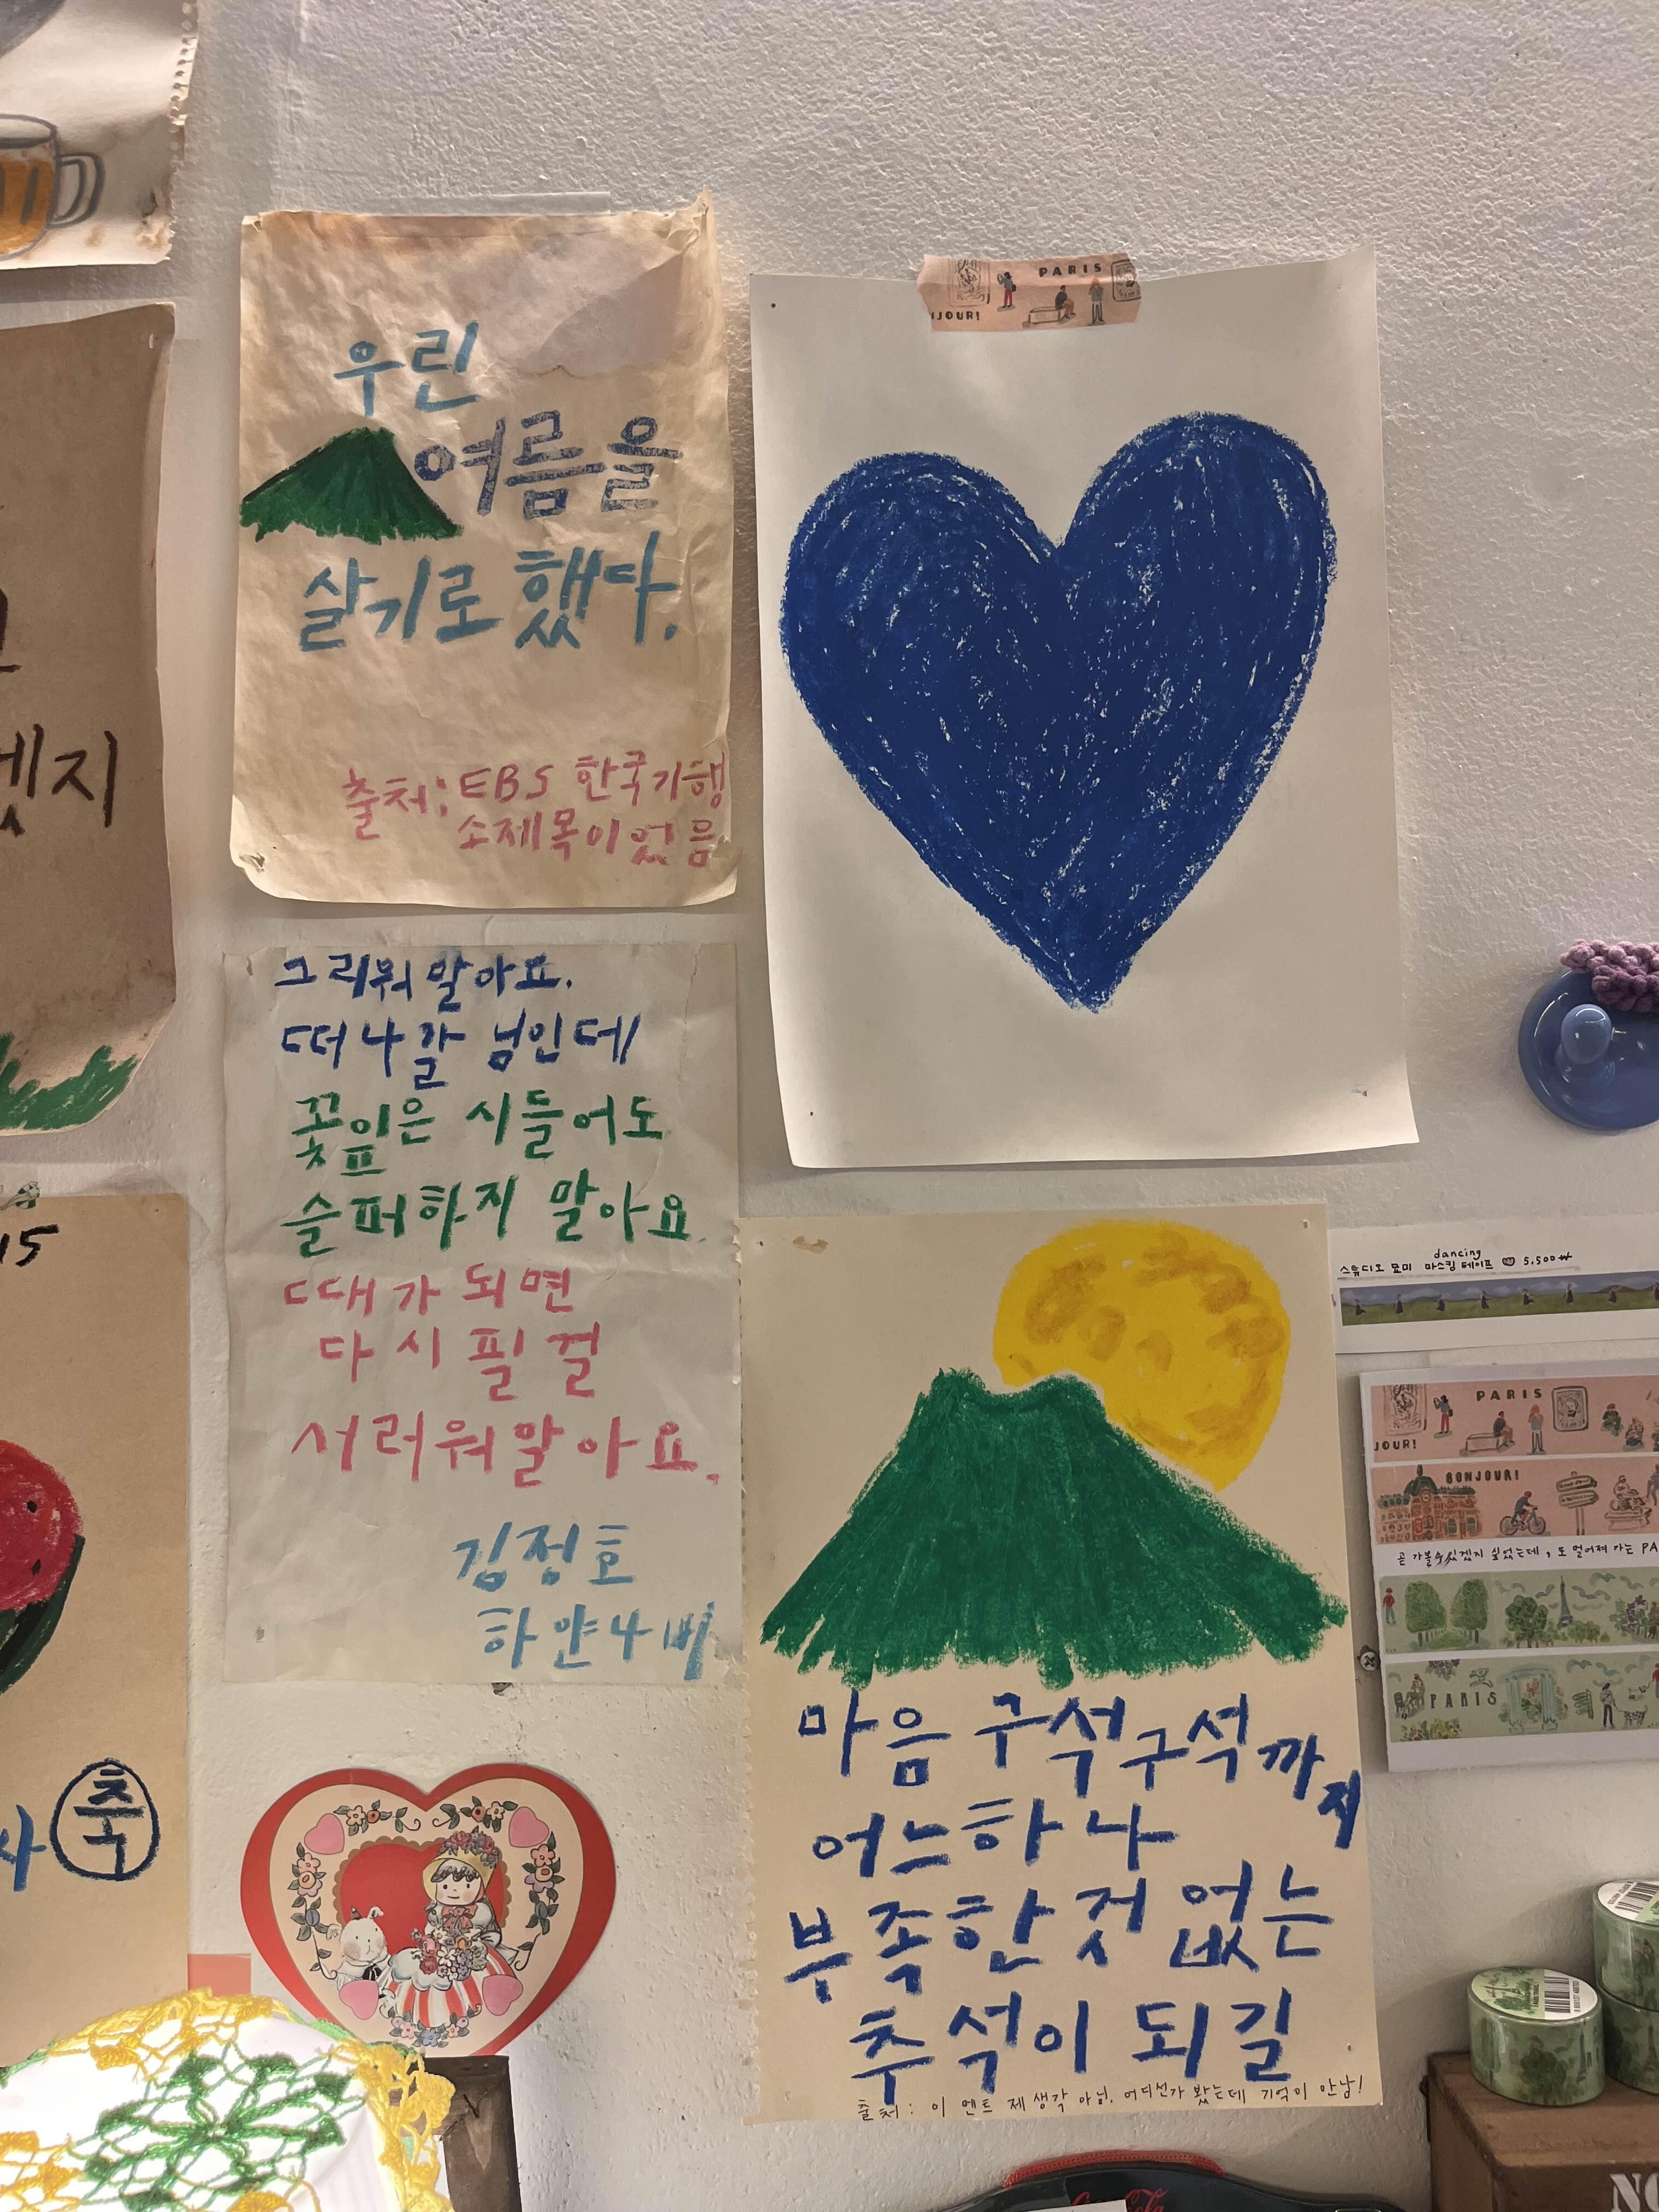 우린
여름을
살기로했다.
출처: EBS 한국기행
소제목이었음
PARIS
JOUR!
그리워말아요.
떠나갈 님인데
꽃잎은 시들어도
슬퍼하지 말아요
때가 되면
다시 필 걸
서러워말아요.
김정호
하얀나비
마음 구석구석까지
어느하나
부족한것 없는
추석이 되길
출처: 이 멘트 제 생각 아님, 어디선가 봤는데 기억이 안남!
겠지
15
사 축
dancing
스튜디오 묘미 마스킹 테이프 5,500₩
PARIS
JOUR!
BONJOUR!
곧 가볼수있겠지 싶었는데, 또 멀어져 가는 PA
PARIS
Coca-Cola
NO